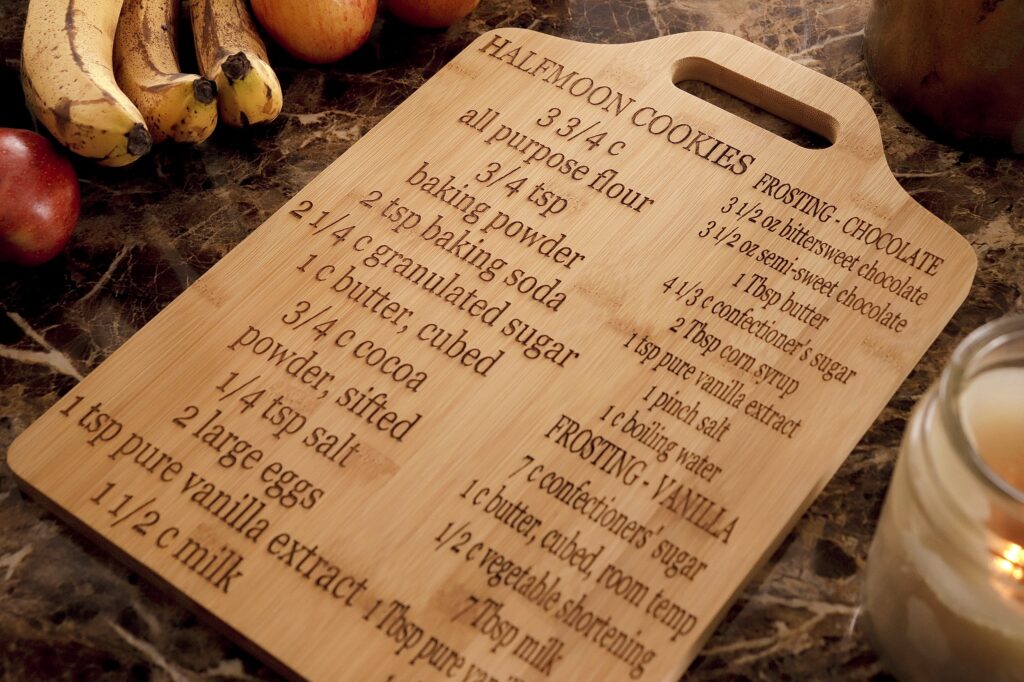 HALFMOON COOKIES
3 3/4 c
all purpose flour
3/4 tsp
baking powder
2 tsp baking soda
2 1/4 c granulated sugar
1 c butter, cubed
3/4 c cocoa
powder, sifted
1/4 tsp salt
2 large eggs
1 tsp pure vanilla extract
1 1/2 c milk
FROSTING - CHOCOLATE
3 1/2 oz bittersweet chocolate
3 1/2 oz semi-sweet chocolate
1 Tbsp butter
4 1/3 c confectioner's sugar
2 Tbsp corn syrup
1 tsp pure vanilla extract
1 pinch salt
1 c boiling water
FROSTING - VANILLA
7 c confectioners' sugar
1 c butter, cubed, room temp
1/2 c vegetable shortening
7 Tbsp milk
1 Tbsp pure